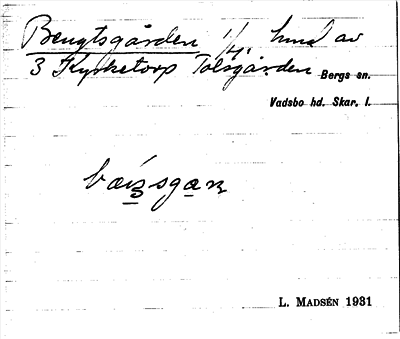 Bengtsgården 1/4. hmd av
3 Kyrketorp Tolsgården Bergs sn.
Vadsbo hd. Skar. l.
bæi̯sgaꞃ
L. MADSÉN 1931